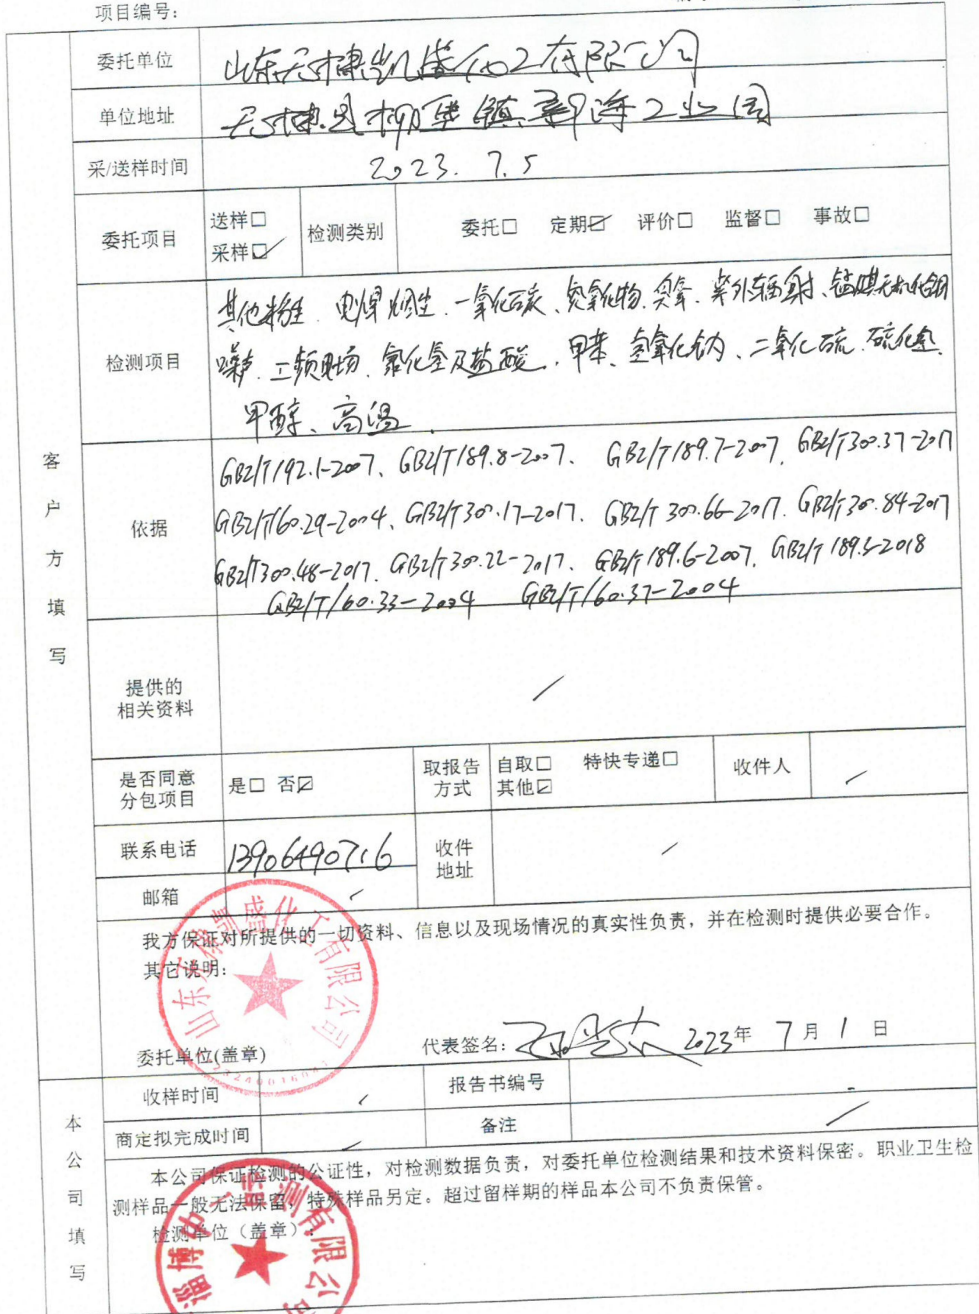 项目编号：
客户方填写
委托单位
山东天懋凯盛化工有限公司
单位地址
镇新海工业园
采/送样时间
2023.7.5
委托项目
送样□
采样☑
检测类别
委托□ 定期☑ 评价□ 监督□ 事故□
检测项目
其他粉尘、电焊烟尘、一氧化碳、氮氧化物、臭氧、紫外辐射、锰及其无机化合物
噪声、工频电场、氯化氢及盐酸、甲苯、氢氧化钠、二氧化硫、硫化氢、
甲醇、高温
依据
GBZ/T192.1-2007、GBZ/T189.8-2007、GBZ/T189.7-2007、GBZ/T300.37-2017
GBZ/T160.29-2004、GBZ/T300.17-2017、GBZ/T300.66-2017、GBZ/T300.84-2017
GBZ/T300.48-2017、GBZ/T300.22-2017、GBZ/T189.6-2007、GBZ/T189.3-2018
GBZ/T160.33-2004 GBZ/T160.37-2004
提供的
相关资料
/
是否同意
分包项目
是□ 否☑
取报告
方式
自取□ 特快专递□
其他☑
收件人
/
联系电话
13906490716
收件
地址
/
邮箱
/
我方保证对所提供的一切资料、信息以及现场情况的真实性负责，并在检测时提供必要合作。
其它说明：
委托单位(盖章)
代表签名：
2023年 7月 1日
本公司填写
收样时间
/
报告书编号
商定拟完成时间
/
备注
/
本公司保证检测的公证性，对检测数据负责，对委托单位检测结果和技术资料保密。职业卫生检
测样品一般无法保留，特殊样品另定。超过留样期的样品本公司不负责保管。
检测单位（盖章）：